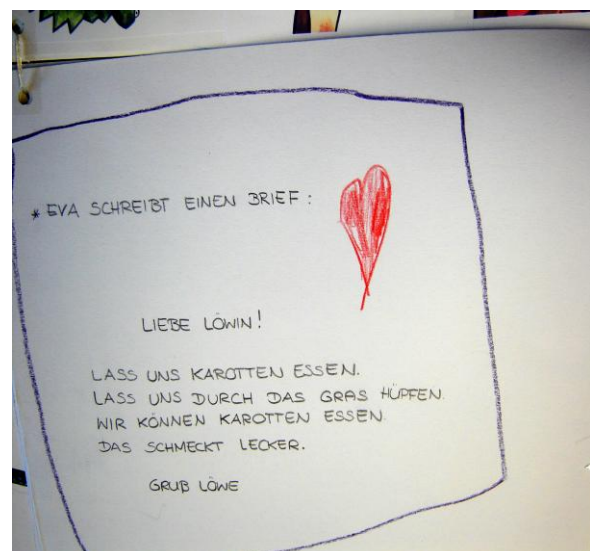 * EVA SCHREIBT EINEN BRIEF :
LIEBE LÖWIN!
LASS UNS KAROTTEN ESSEN.
LASS UNS DURCH DAS GRAS HÜPFEN.
WIR KÖNNEN KAROTTEN ESSEN.
DAS SCHMECKT LECKER.
GRUß LÖWE